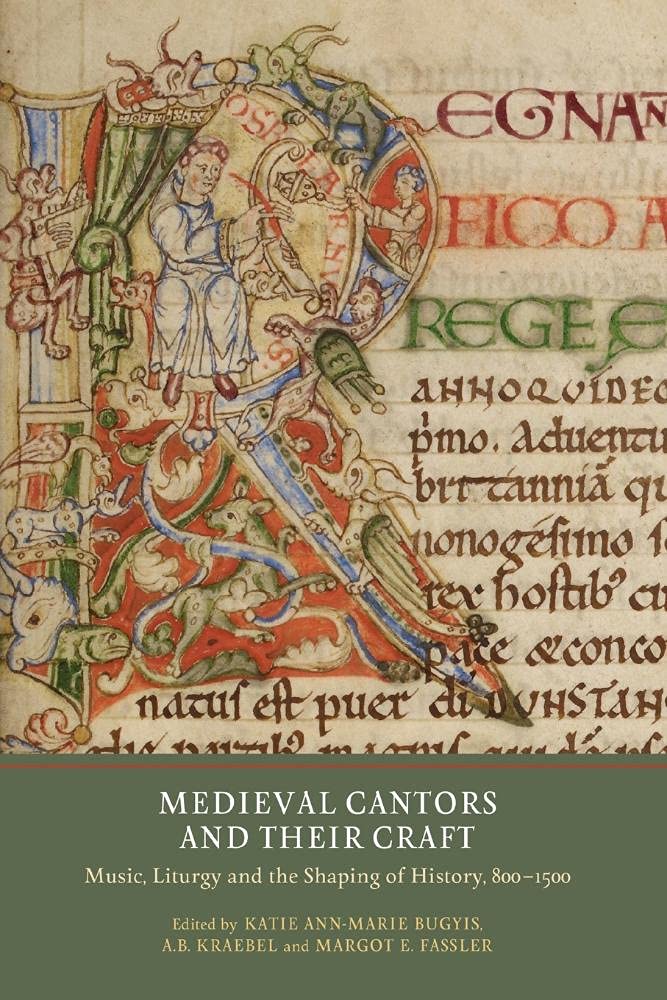 OSB
LA
REGNAN
FICO A
REGE E
ANNO QUIDEO
p̄mo. Aduentu
brittanniā qu
nonogésimo
rex hostib⁹ cu
pace & conco
natus est puer di DUNSTAN
MEDIEVAL CANTORS
AND THEIR CRAFT
Music, Liturgy and the Shaping of History, 800–1500
Edited by KATIE ANN-MARIE BUGYIS,
A.B. KRAEBEL and MARGOT E. FASSLER